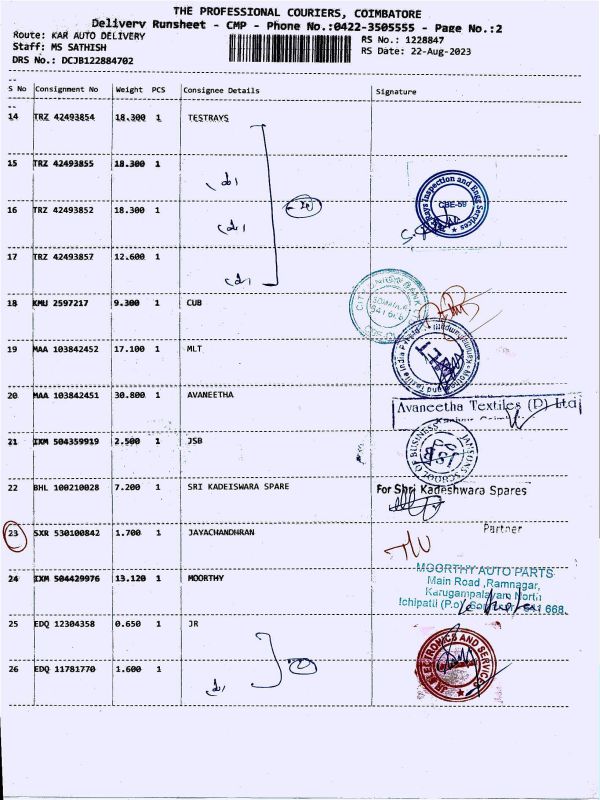 THE PROFESSIONAL COURIERS, COIMBATORE
Delivery Runsheet - CMP - Phone No.:0422-3505555 - Page No.:2
Route: KAR AUTO DELIVERY
RS No.: 1228847
Staff: MS SATHISH
RS Date: 22-Aug-2023
DRS No.: DCJB122884702
S No Consignment No Weight PCS Consignee Details Signature
14 TRZ 42493854 18.300 1 TESTRAYS
15 TRZ 42493855 18.300 1
16 TRZ 42493852 18.300 1
CBE-59
17 TRZ 42493857 12.600 1
18 KMU 2597217 9.300 1 CUB
CITY UNION BANK
19 MAA 103842452 17.100 1 MLT
20 MAA 103842451 30.800 1 AVANEETHA
Avaneetha Textiles (P) Ltd
21 IXM 504359919 2.500 1 JSB
22 BHL 100210028 7.200 1 SRI KADEISWARA SPARE
For Shri Kadeshwara Spares
Partner
23 SXR 530100842 1.700 1 JAYACHANDHRAN
24 IXM 504429976 13.120 1 MOORTHY
MOORTHY AUTO PARTS
Main Road ,Ramnagar,
Karugampalayam North
Ichipatti (P.o) 668.
25 EDQ 12304358 0.650 1 JR
JR ELECTRONICS AND SERVICES
26 EDQ 11781770 1.600 1